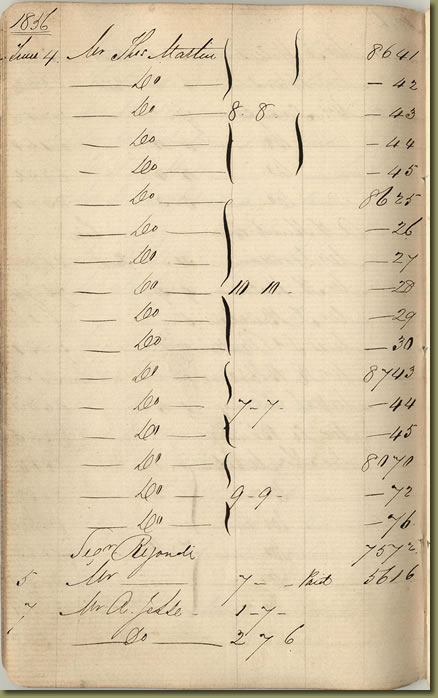 1836
June 4. Mr Thos Martin 8641
— Do — — 42
— Do — 8. 8. — 43
— Do — — 44
— Do — — 45
— Do — 8625
— Do — — 26
— Do — — 27
— Do — 10 10. — 28
— Do — — 29
— Do — — 30
— Do — 8743
— Do — 7-7- — 44
— Do — — 45
— Do — 8070
— Do — 9-9- — 72
— Do — — 76
7572
5 Mr — 7 — - Paid 5616
7 Mr A. - 1-7-
— Do — 2 7 6